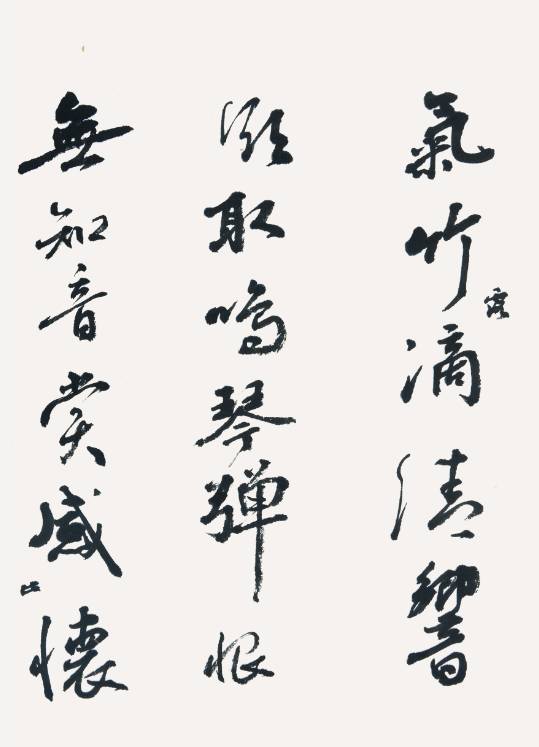 氣竹露滴清響
欲取鳴琴彈恨
無知音賞感此懷